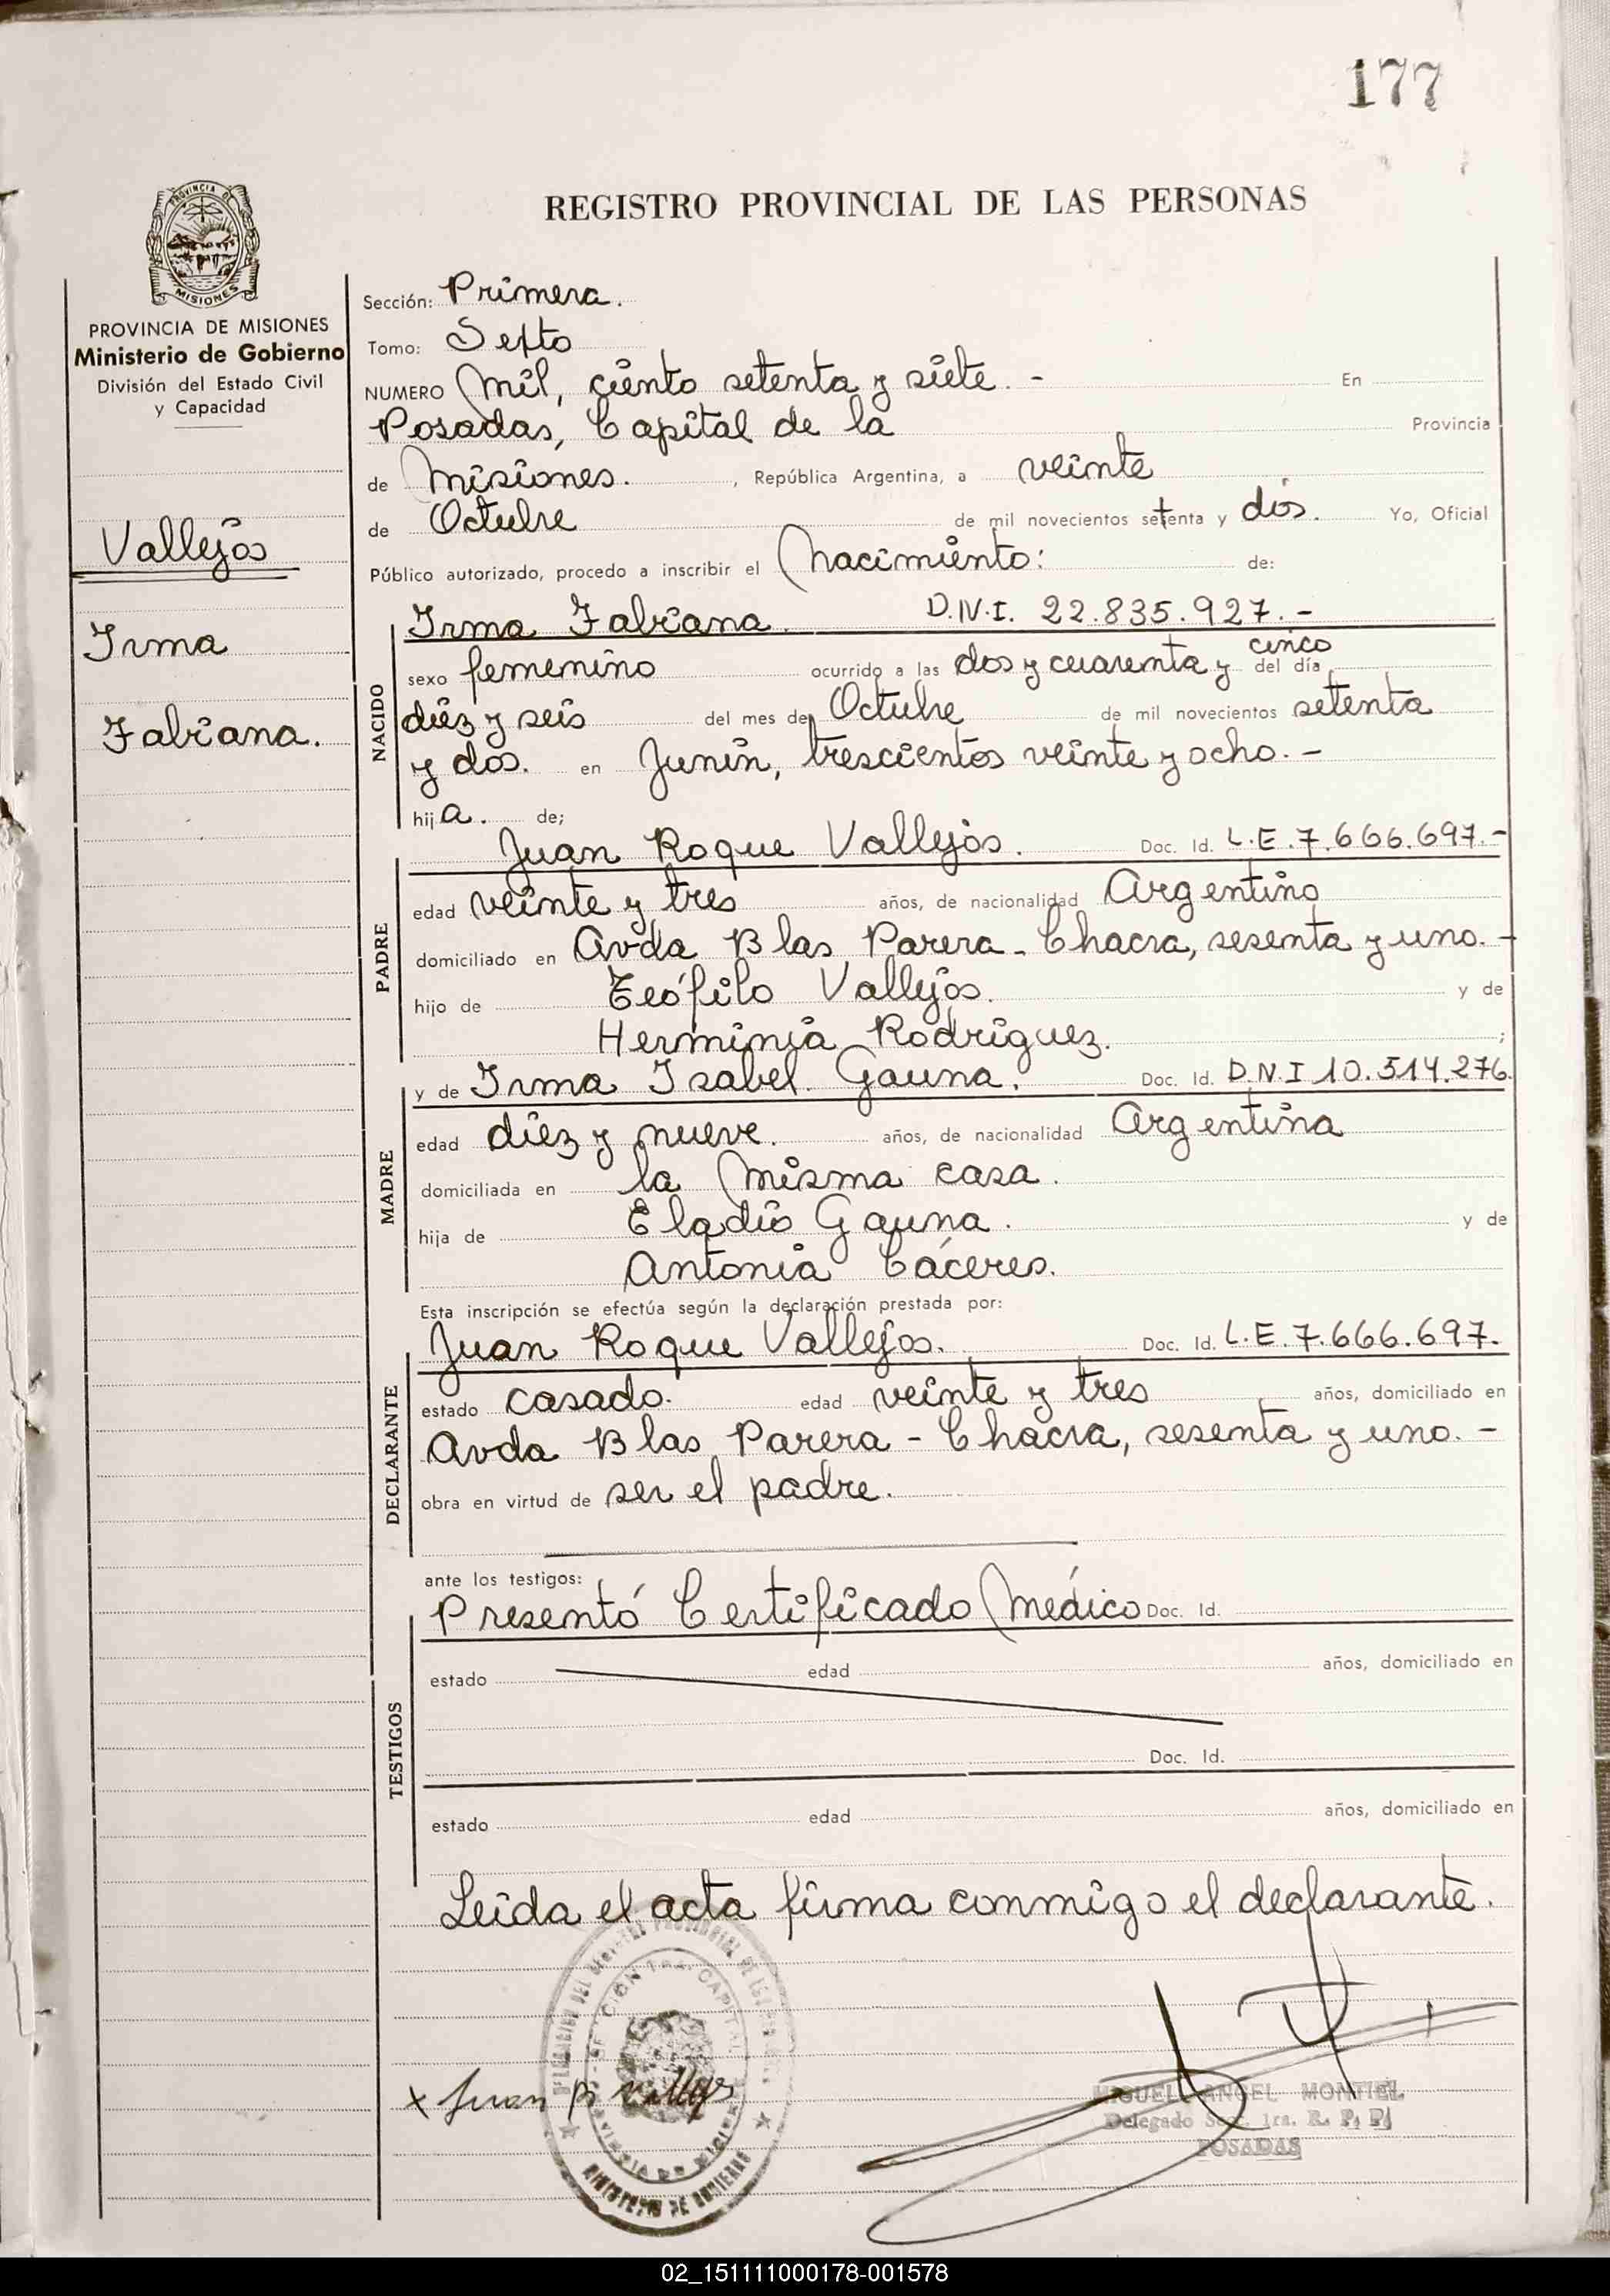 177
REGISTRO PROVINCIAL DE LAS PERSONAS
PROVINCIA DE
MISIONES
PROVINCIA DE MISIONES
Ministerio de Gobierno
División del Estado Civil
y Capacidad
Vallejos
Irma
Fabiana.
Sección: Primera.
Tomo: Sexto
NUMERO Mil, ciento setenta y siete. - En
Posadas, Capital de la Provincia
de Misiones. , República Argentina, a veinte
de Octubre de mil novecientos setenta y dos. Yo, Oficial
Público autorizado, procedo a inscribir el Nacimiento: de:
NACIDO
Irma Fabiana. D.N.I. 22.835.927.-
sexo femenino ocurrido a las dos y cuarenta y cinco del día
diez y seis del mes de Octubre de mil novecientos setenta
y dos. en Junín, trescientos veinte y ocho. -
hija. de;
PADRE
Juan Roque Vallejos. Doc. Id. L.E. 7.666.697.-
edad veinte y tres años, de nacionalidad Argentino
domiciliado en Avda Blas Parera - Chacra, sesenta y uno. -
hijo de Teófilo Vallejos. y de
Herminia Rodríguez. ;
MADRE
y de Irma Isabel Gauna. Doc. Id. D.N.I 10.514.276.
edad diez y nueve. años, de nacionalidad Argentina
domiciliada en la misma casa.
hija de Eladio Gauna. y de
Antonia Cáceres.
Esta inscripción se efectúa según la declaración prestada por:
DECLARANTE
Juan Roque Vallejos. Doc. Id. L.E. 7.666.697.
estado casado. edad veinte y tres años, domiciliado en
Avda Blas Parera - Chacra, sesenta y uno. -
obra en virtud de ser el padre.
ante los testigos:
TESTIGOS
Presentó Certificado Médico Doc. Id.
estado edad años, domiciliado en
Doc. Id.
estado edad años, domiciliado en
Leída el acta firma conmigo el declarante.
x Juan R Vallejos
MINISTERIO DE GOBIERNO
MIGUEL ANGEL MONTIEL
Delegado Secc. 1ra. R. P. P.
POSADAS
02_151111000178-001578